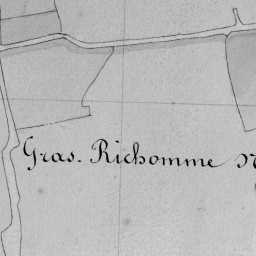 Gras. Richomme